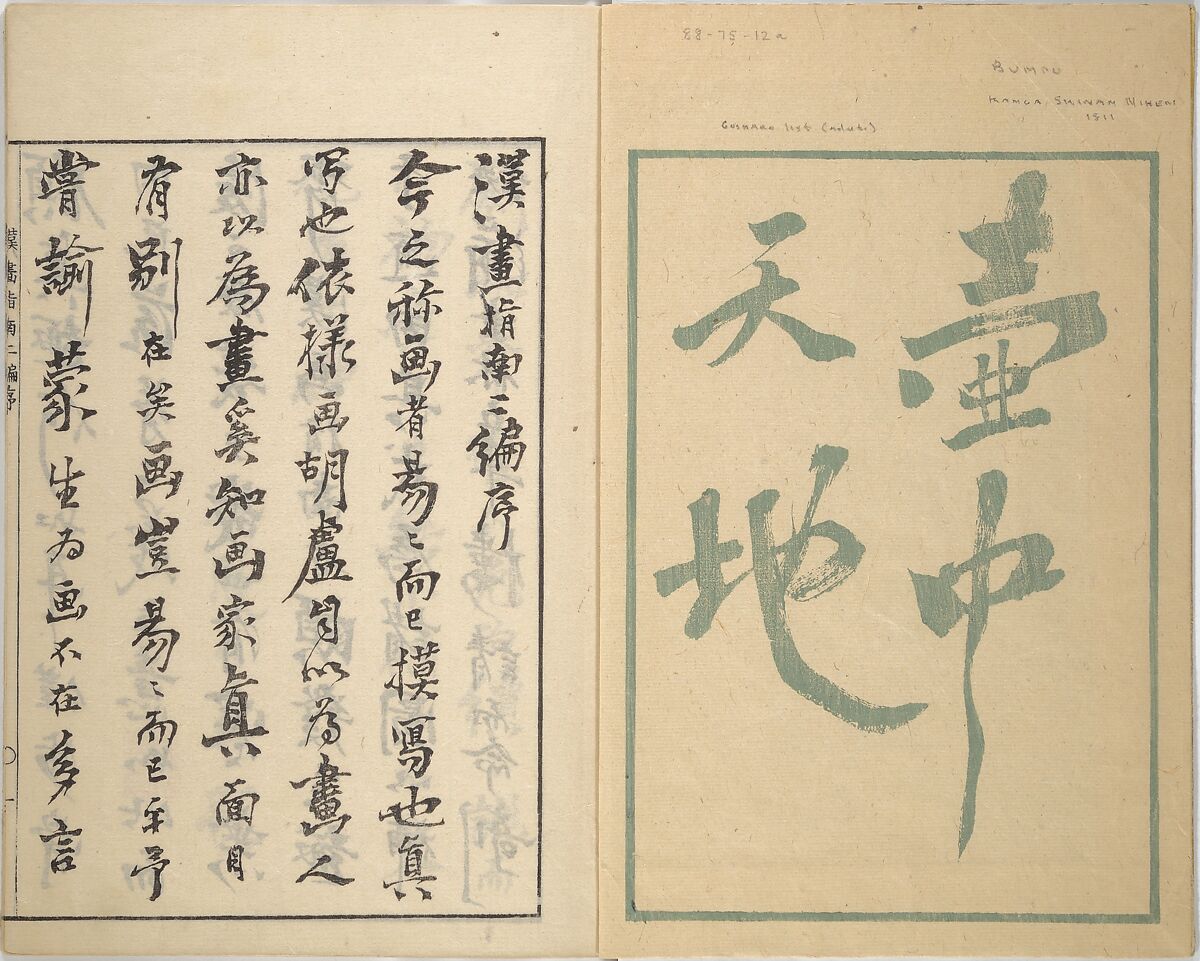 88-75-12a
BUMPU
KANGA SHINAN NIHEN
1811
壺中
天地
漢畫指南二編序
今之称画者易〻而已摸寫也真
写也依様画胡盧自以為畫人
亦以為畫奚知画家真面目
有別在矣画豈易〻而已乎予
嘗諭蒙生為画不在多言
漢畫指南二編序
〇一